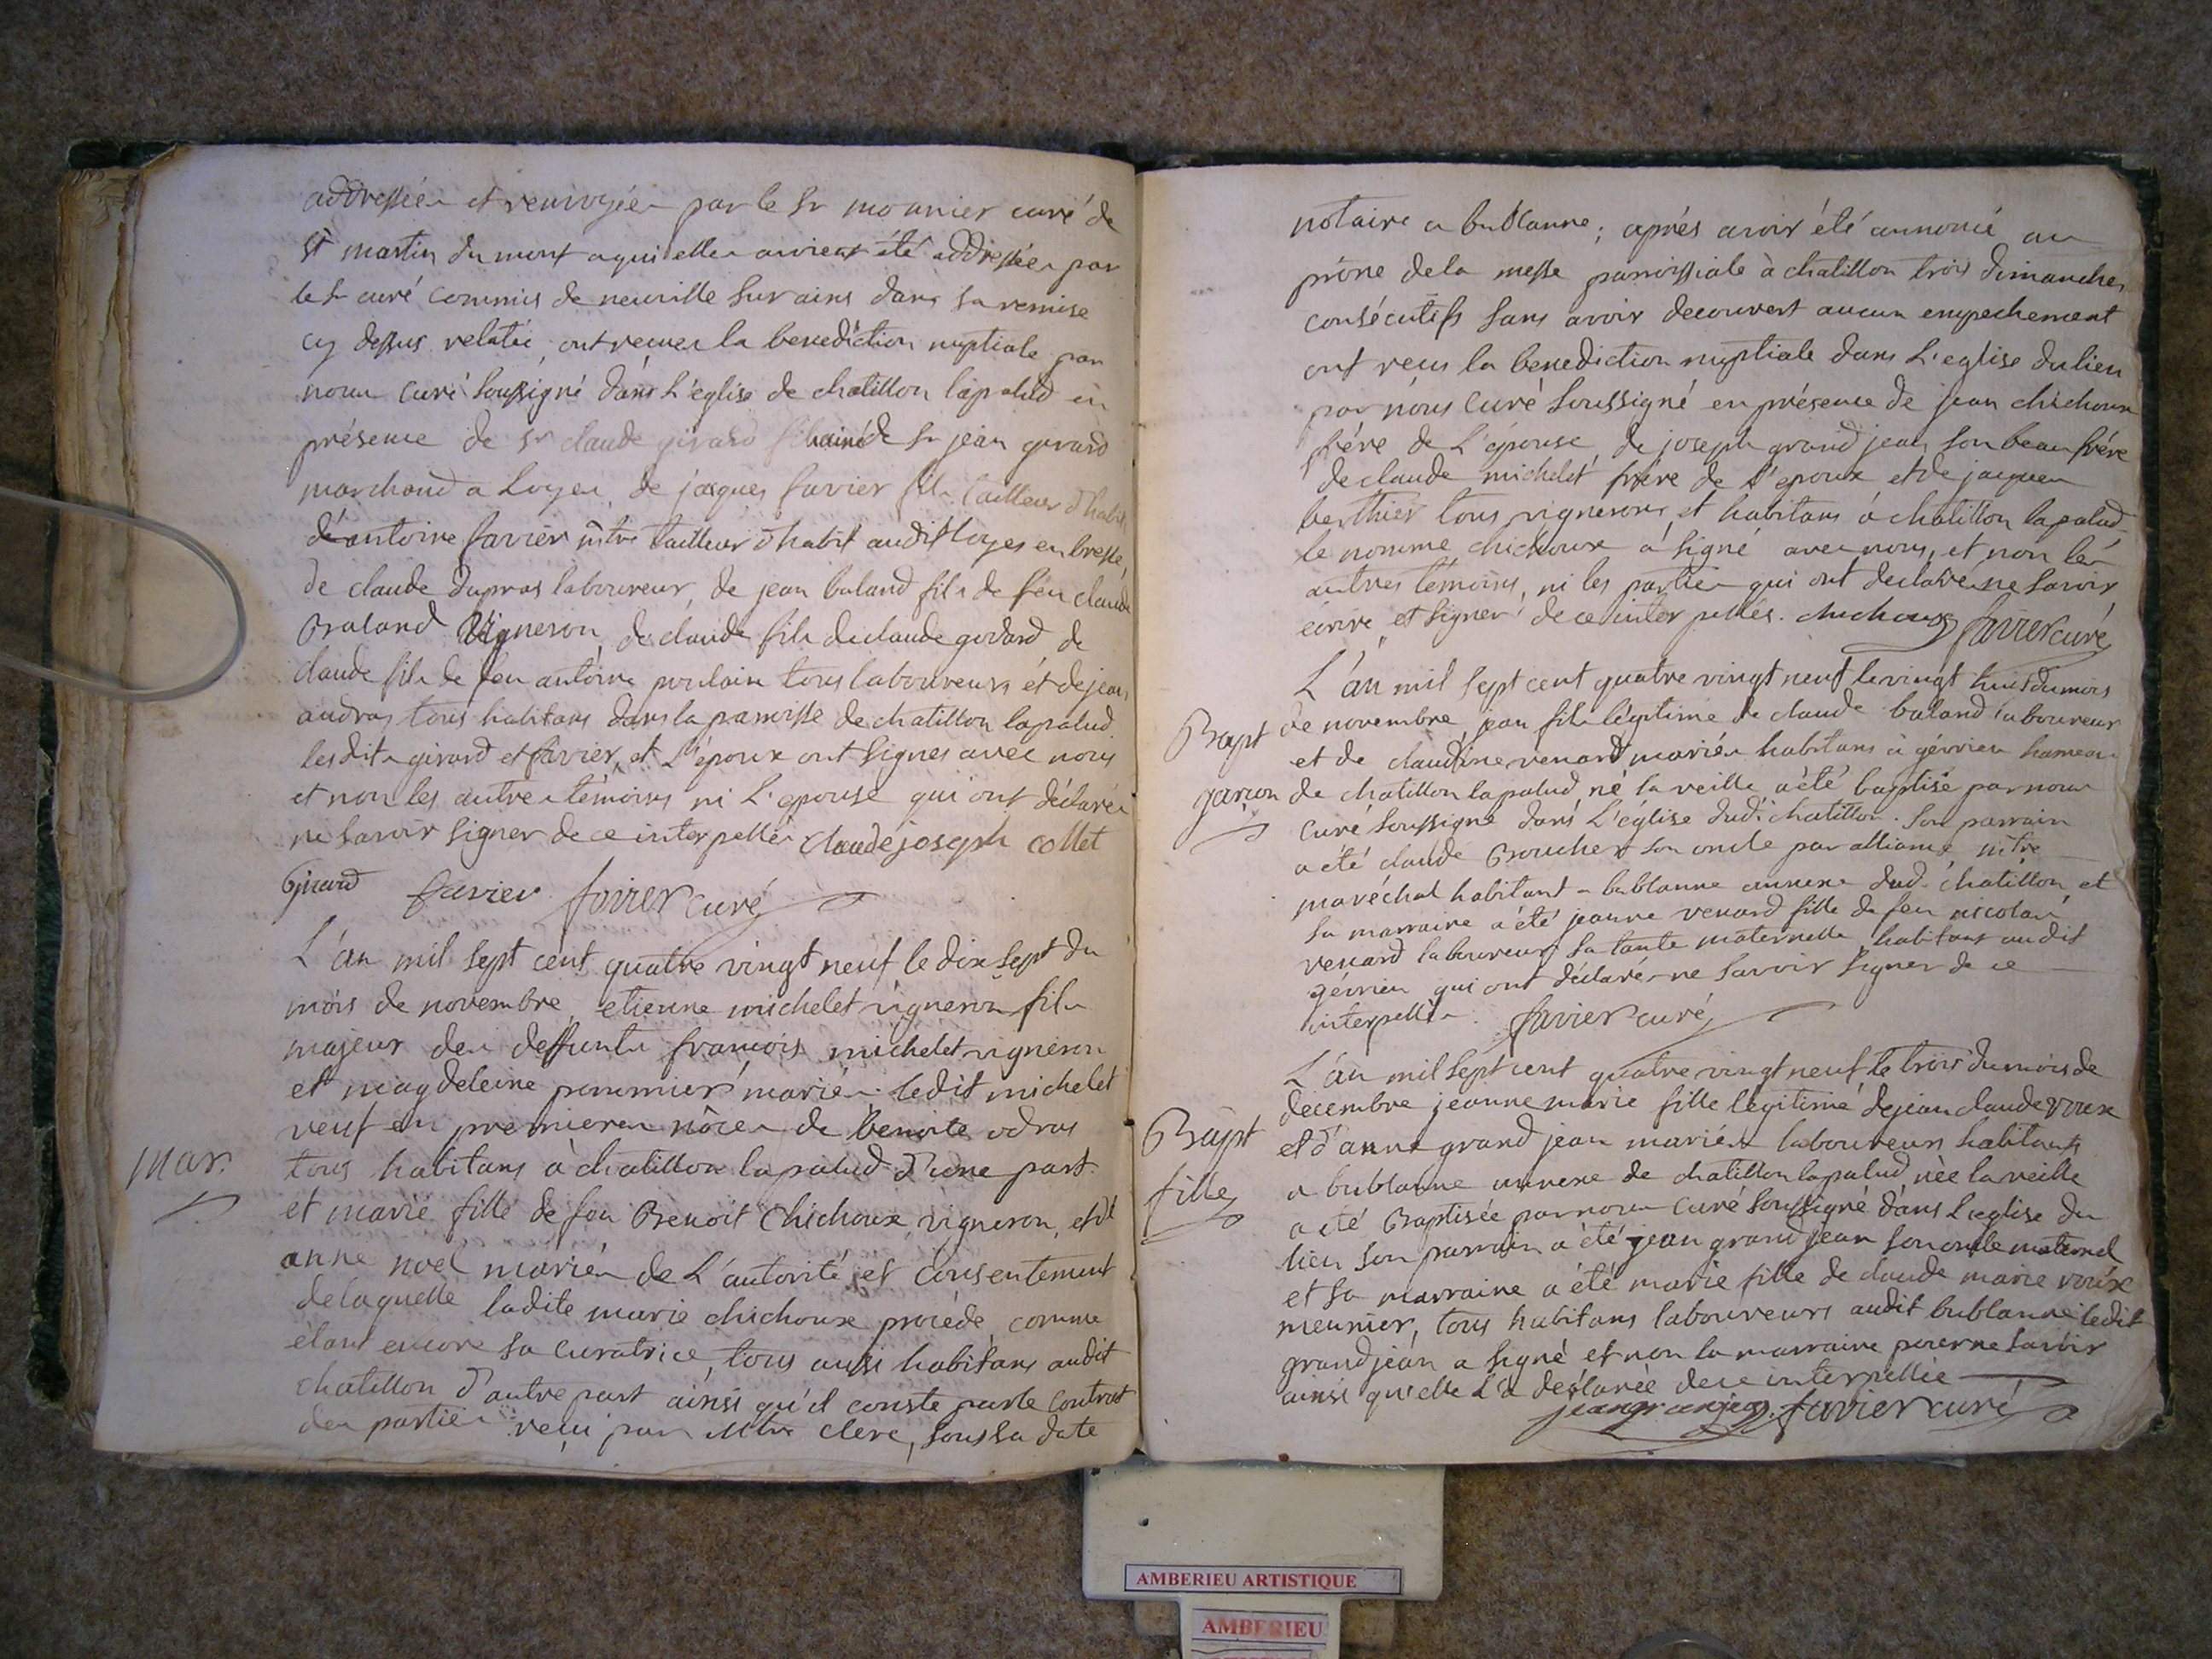 addressées et renvoyées par le Sr monnier curé de
St martin du mont a qui elles avoient été addressées par
le Sr curé commis de neuville Sur ains dans sa remise
cy dessus relatée, ont recues la benediction nuptiale par
nous curé Soussigné dans L'église de chatillon lapalud en
présence de Sr claude girard fils ainé de Sr jean girard
marchand a Loyes, de jacques favier fils tailleur d'habit
d'antoine favier mtre tailleur d'habit audit loyes en bresse,
de claude dupras laboureur, de jean baland fils de feu claude
Baland Vigneron, de claude fils de claude godard, de
claude fils de feu antoine poulain tous laboureurs et de jean
audras tous habitans dans la paroisse de chatillon lapalud.
lesdits girard et favier, et L'époux ont signés avec nous
et non les autres témoins ni L'epouse qui ont déclarés
ne savoir signer de ce interpellés claude joseph collet
Girard favier favier curé
L'an mil sept cent quatre vingt neuf le dix sept du
mois de novembre, etienne michelet vigneron fils
majeur des deffunts francois michelet vigneron
et magdeleine pommier mariés ledit michelet
veuf en premieres nôces de benoite odras
mar.
tous habitans à chatillon lapalud d'une part.
et marie fille de feu Benoit Chichoux, vigneron, et d'
anne noel mariés de L'autorité et consentement
de laquelle ladite marie chichoux procéde, comme
étant encore sa curatrice, tous aussi habitans audit
chatillon d'autre part ainsi qu'il conste par le contrat
des parties reçu par Mtre clerc, sous sa date
notaire a bublanne; aprés avoir été annoncé au
prône de la messe paroissiale à chatillon trois dimanches
consécutifs sans avoir decouvert aucun empechement
ont recus la benediction nuptiale dans L'eglise du lieu
par nous curé Soussigné en présence de jean chichoux
frére de L'épouse, de joseph grand jean son beau frére
de claude michelet frére de L'epoux et de jacques
berthier tous vignerons et habitans à chatillon lapalud
le nomme chichoux a signé avec nous, et non les
autres témoins, ni les parties qui ont declarés ne savoir
écrire et signer de ce interpellés. chichoux favier curé
L'an mil sept cent quatre vingt neuf le vingt huit du mois
Bapt
de novembre jean fils légitime de claude baland laboureur
et de claudine venard mariés habitans à gévrieu hameau
garcon
de chatillon lapalud né la veille a été baptisé par nous
curé soussigné dans L'église dudi chatillon. Son parrain
a été claude Broucher son oncle par alliance mtre
maréchal habitant a bublanne annexe dud. chatillon et
sa marraine a été jeanne venard fille de feu nicolas
venard laboureur, sa tante maternelle habitans audit
gévrieu qui ont déclarés ne savoir signer de ce
interpellés. favier curé
L'an mil sept cent quatre vingt neuf le trois du mois de
décembre jeanne marie fille légitime de jean claude roux
Bapt
et d'anne grand jean mariés laboureurs habitants
fille
a bublanne annexe de chatillon lapalud, née la veille
a été Baptisée par nous curé soussigné dans L'eglise du
lieu son parrain a été jean grand jean son oncle maternel
et sa marraine a été marie fille de claude marie roux
meunier, tous habitans laboureurs audit bublanne ledit
grandjean a signé et non la marraine pour ne savoir
ainsi qu'elle L'a déclarée de ce interpellée
jean granjean favier curé
AMBERIEU ARTISTIQUE
AMBERIEU